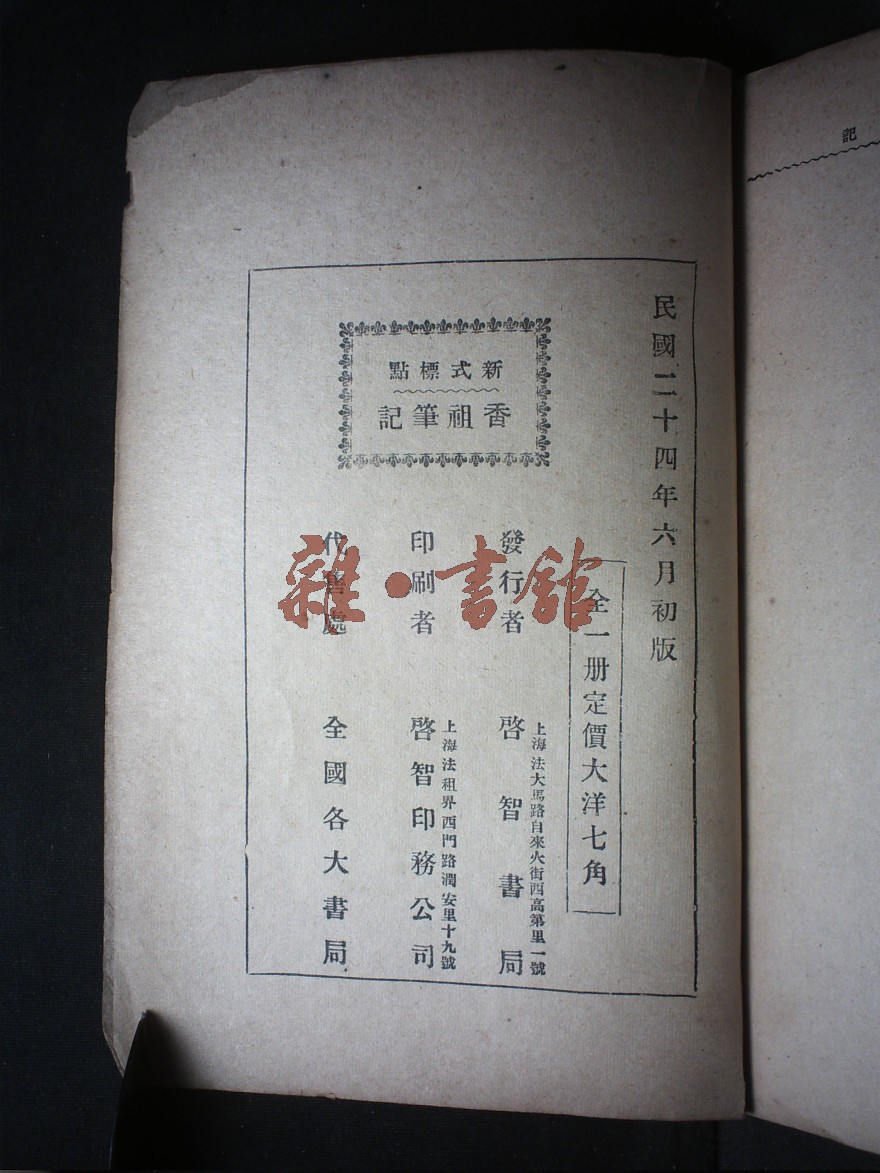 記
民國二十四年六月初版
全一册定價大洋七角
新式標點
香祖筆記
發行者
上海法大馬路自來火街西高第里一號
啓智書局
印刷者
上海法租界西門路潤安里十九號
啓智印務公司
代售處
全國各大書局
雜·書館